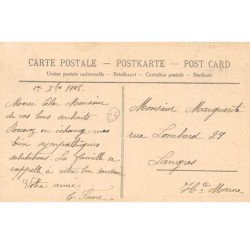 CARTE POSTALE — POSTKARTE — POST CARD
Union postale universelle — Briefkaart — Cartolina postale — Brefkort
1er Xbre 1908.
Merci Cher Monsieur
de vos bons souhaits
Recevez en échange, mes
bien sympathiques
salutations. La famille se
rappelle à votre bon souvenir
Votre amie
Faure
Monsieur Marguerite
rue Lombard 27
Langres
Hte Marne